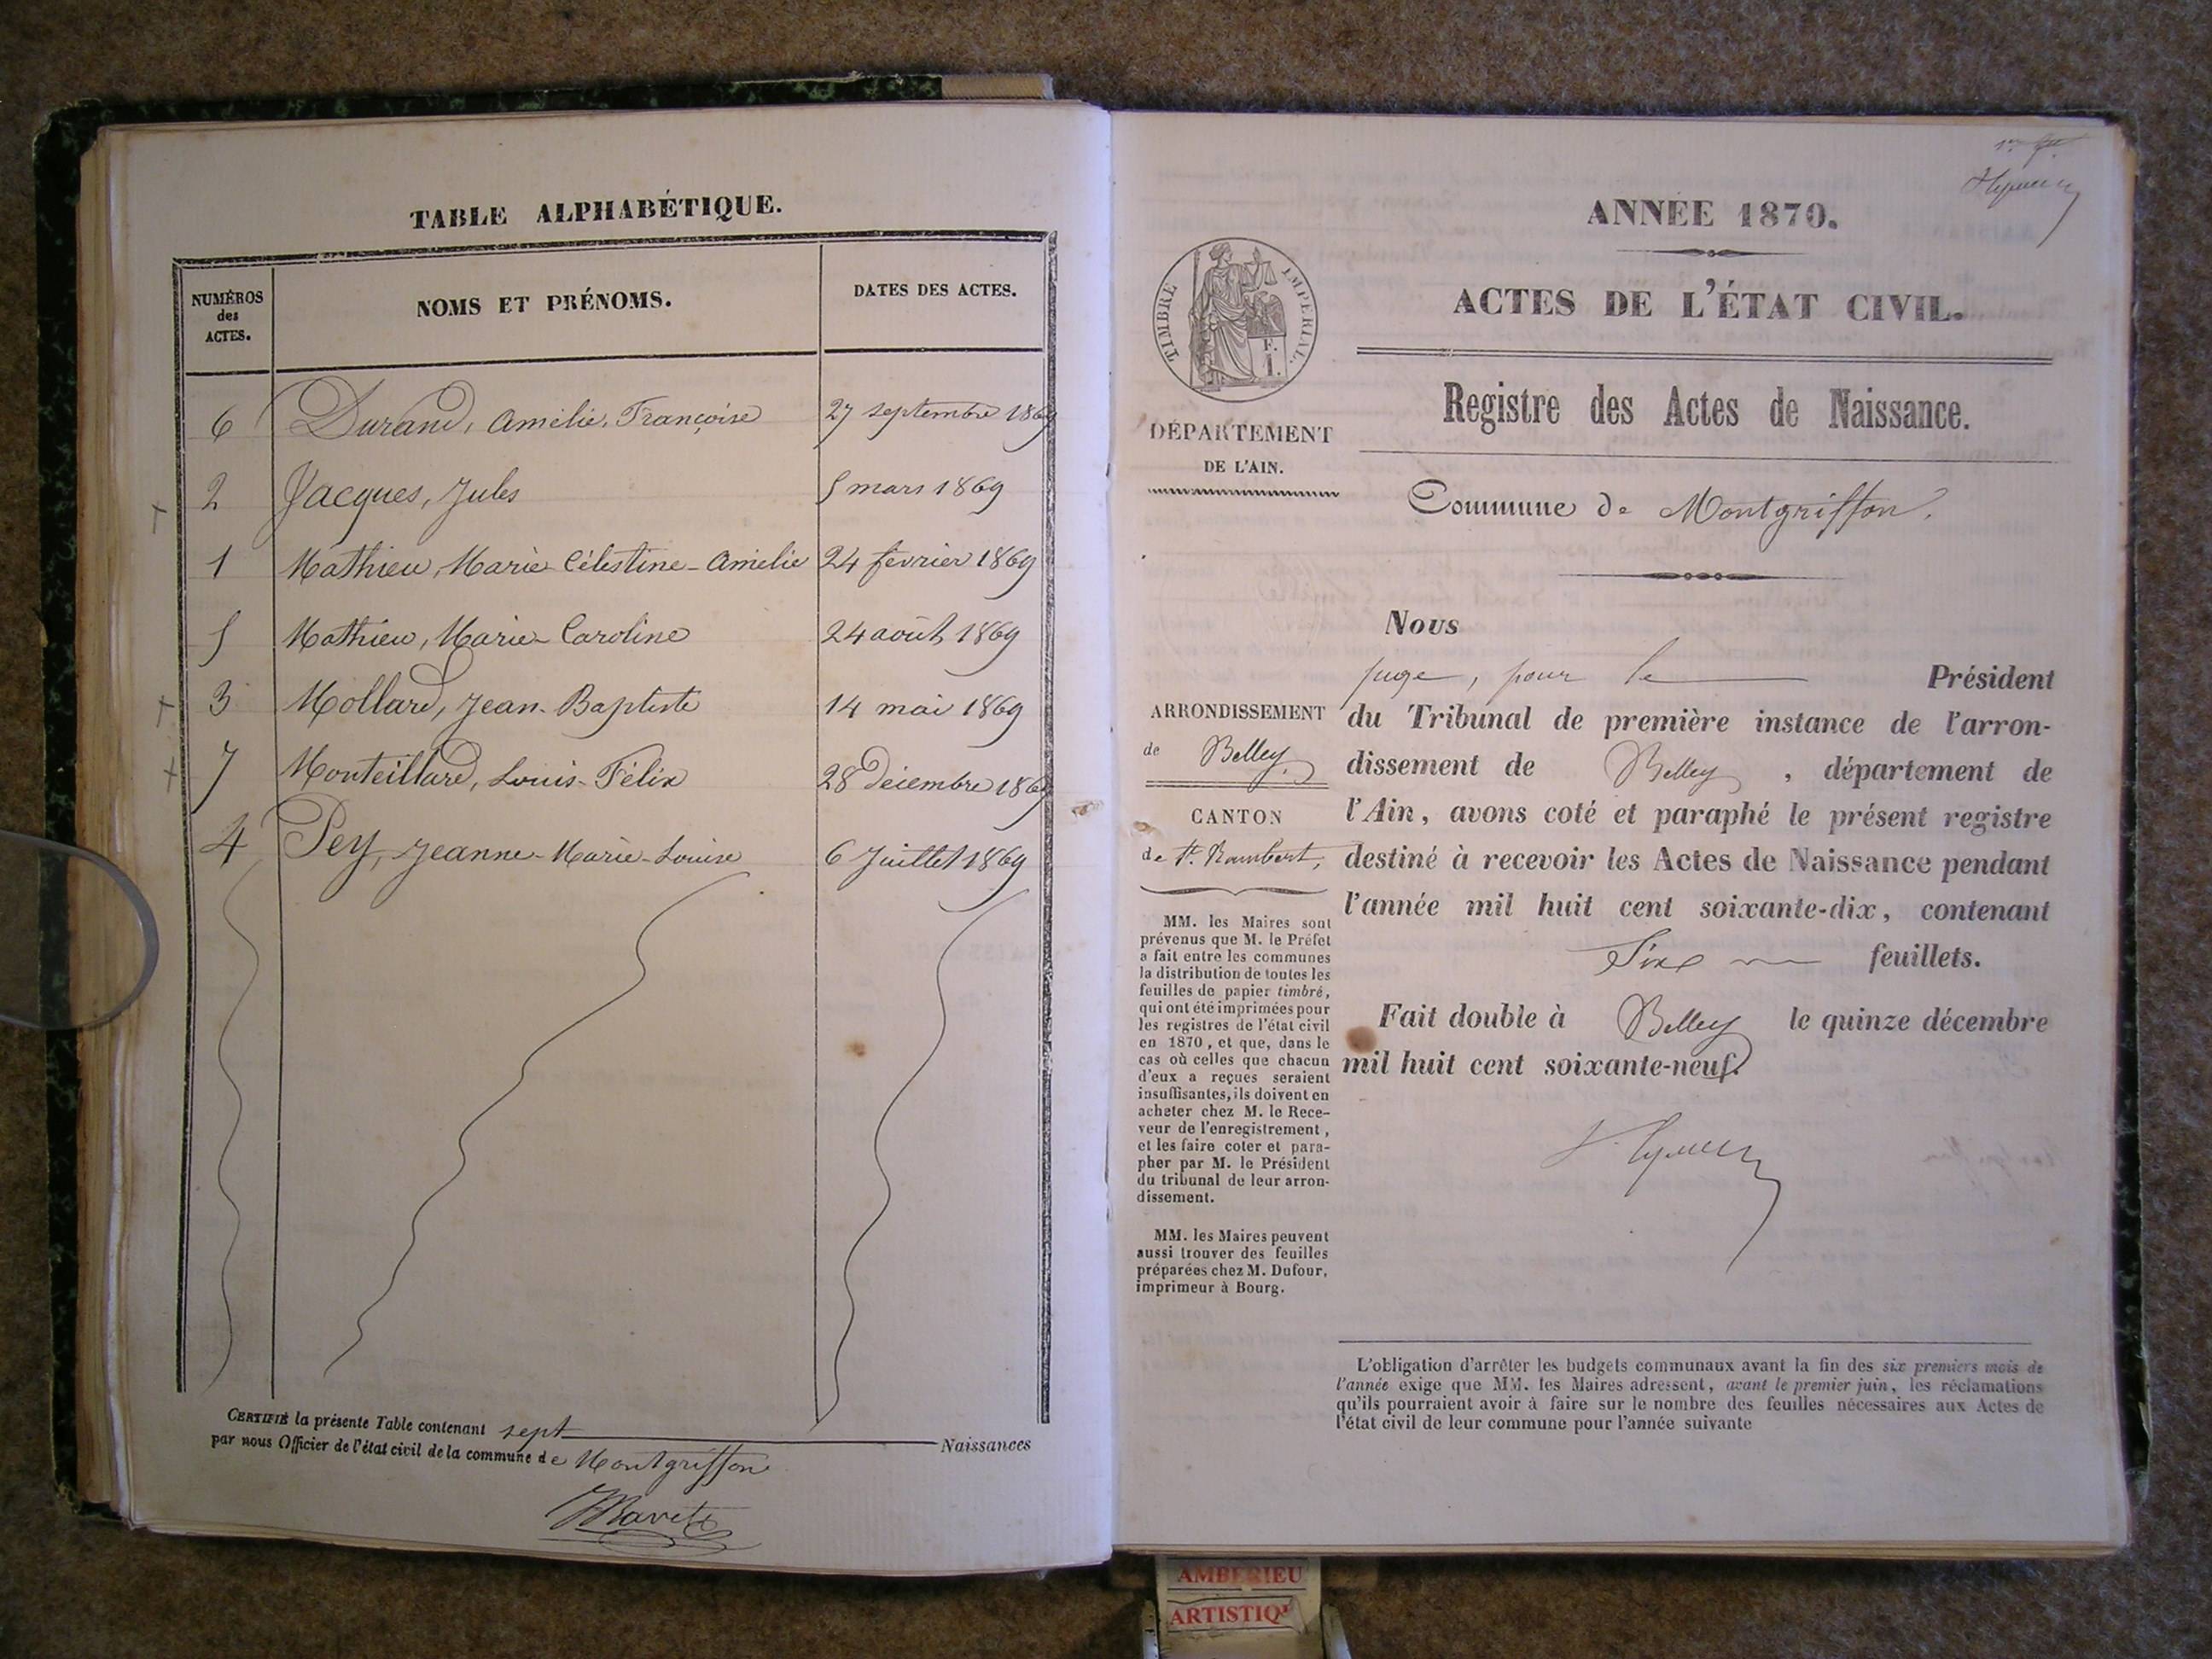 TABLE ALPHABÉTIQUE.
NUMÉROS
des
ACTES.
NOMS ET PRÉNOMS.
DATES DES ACTES.
6 Durand, Amélie, Françoise 27 septembre 1869
2 Jacques, Jules 5 mars 1869
1 Mathieu, Marie Célestine-Amélie 24 février 1869
5 Mathieu, Marie-Caroline 24 août 1869
3 Mollard, Jean-Baptiste 14 mai 1869
7 Monteillard, Louis-Félix 28 Décembre 1869
4 Pey, Jeanne-Marie-Louise 6 Juillet 1869
CERTIFIÉ la présente Table contenant sept Naissances
par nous Officier de l'état civil de la commune de Montgriffon
ANNÉE 1870.
ACTES DE L'ÉTAT CIVIL.
Registre des Actes de Naissance.
Commune de Montgriffon.
TIMBRE IMPÉRIAL.
F.
1.
DÉPARTEMENT
DE L'AIN.
ARRONDISSEMENT
de Belley
CANTON
de St. Rambert,
MM. les Maires sont
prévenus que M. le Préfet
a fait entre les communes
la distribution de toutes les
feuilles de papier timbré,
qui ont été imprimées pour
les registres de l'état civil
en 1870, et que, dans le
cas où celles que chacun
d'eux a reçues seraient
insuffisantes, ils doivent en
acheter chez M. le Rece-
veur de l'enregistrement,
et les faire coter et para-
pher par M. le Président
du tribunal de leur arron-
dissement.
MM. les Maires peuvent
aussi trouver des feuilles
préparées chez M. Dufour,
imprimeur à Bourg.
Nous
juge, pour le Président
du Tribunal de première instance de l'arron-
dissement de Belley, département de
l'Ain, avons coté et paraphé le présent registre
destiné à recevoir les Actes de Naissance pendant
l'année mil huit cent soixante-dix, contenant
Six feuillets.
Fait double à Belley le quinze décembre
mil huit cent soixante-neuf.
L'obligation d'arrêter les budgets communaux avant la fin des six premiers mois de
l'année exige que MM. les Maires adressent, avant le premier juin, les réclamations
qu'ils pourraient avoir à faire sur le nombre des feuilles nécessaires aux Actes de
l'état civil de leur commune pour l'année suivante
AMBERIEU
ARTISTIQU